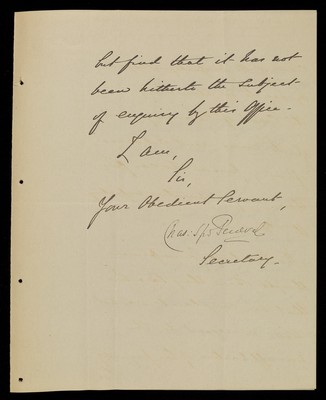 but find that it has not
been hitherto the subject
of enquiry by this Office.
I am,
Sir,
Your Obedient Servant,
Secretary.